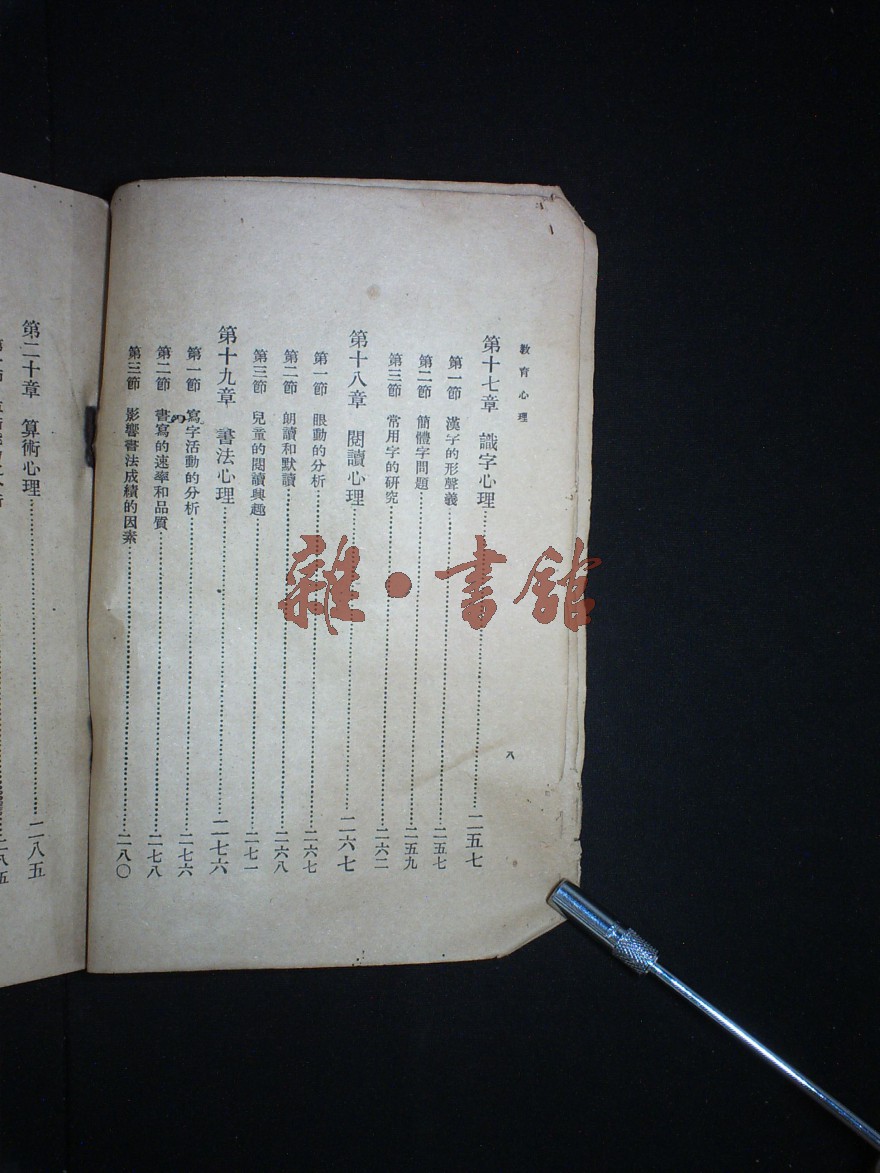 教育心理
第十七章 識字心理……二五七
第一節 漢字的形聲義……二五七
第二節 簡體字問題……二五九
第三節 常用字的研究……二六二
第十八章 閱讀心理……二六七
第一節 眼動的分析……二六七
第二節 朗讀和默讀……二六八
第三節 兒童的閱讀興趣……二七一
第十九章 書法心理……二七六
第一節 寫字活動的分析……二七六
第二節 書寫的速率和品質……二七八
第三節 影響書法成績的因素……二八〇
八
第二十章 算術心理……二八五
二八五
雜·書館